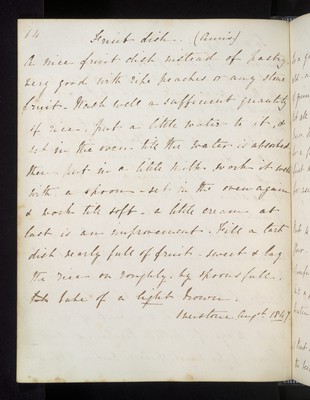 14
Fruit dish. (Annis)
A nice fruit dish instead of pastry
very good with ripe peaches or any stone
fruit - Wash well a sufficient quantity
of rice, put a little water to it, &
set in the oven till the water is absorbed
then put in a little milk, work it well
with a spoon - set in the oven again
& work till soft. a little cream at
last is an improvement. Fill a tart
dish nearly full of fruit. sweet & lay
the rice on roughly, by spoonsfull.
bake of a light brown.
Augst. 1847